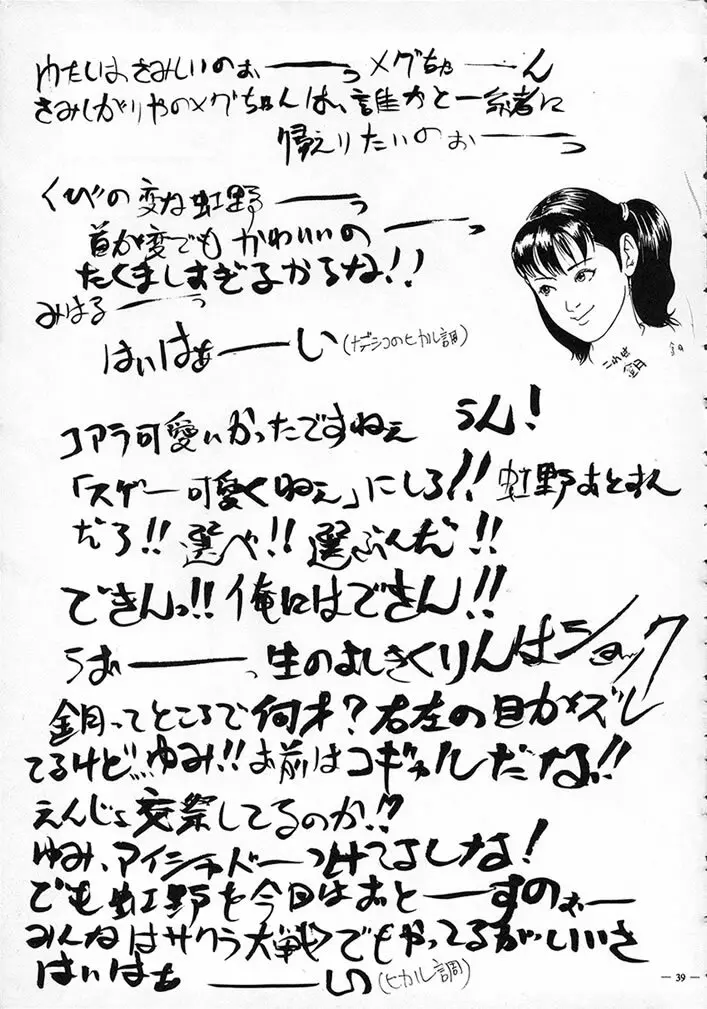 わたしは、さみしいのぉーーっ メグちゃーーん
さみしがりやのメグちゃんは、誰かと一緒に
帰えりたいのぉーーっ
くびの変な虹野ーーっ
首が変でも かわいいのーーっ
たくましすぎるからな!!
みはるーーっ
はいはぁーーい(ナデシコのヒカル調)
これは
鏡
コアラ可愛いかったですねぇ うん!
「スゲー可愛くねぇ」にしろ!! 虹野おとすん
だろ!! 選べ!! 選ぶんだ!!
できんっ!! 俺にはできん!!
うおーーっ 生のよしきくりんはショック
ってところで何才? 右左の目がズレ
てるけど… ゆみ!! お前はコギャルだな!!
えんじょ交祭してるのか!?
ゆみ、アイシャドーつけてよしな!
でも虹野を今日はおとーーすのぉー
みんなはサクラ大戦でもやってるがいいさ
はいはぁーーい(ヒカル調)
— 39 —